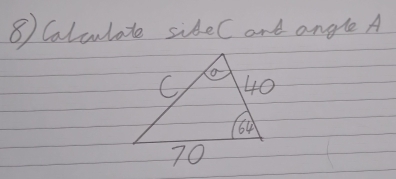 8) Calculate side C and angle A
a
C 40
64
70